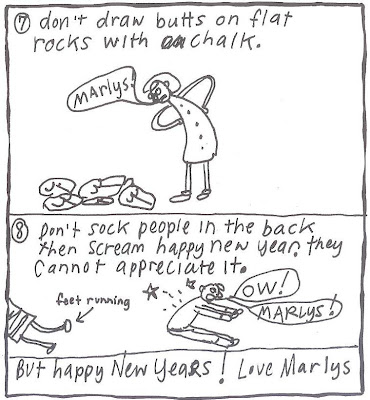 ⑦ don't draw butts on flat
rocks with chalk.
MARlys!
⑧ Don't sock people in the back
then scream happy new year, they
Cannot appreciate it.
feet running
OW!
MARLYS!
But happy New YeaRs! Love Marlys